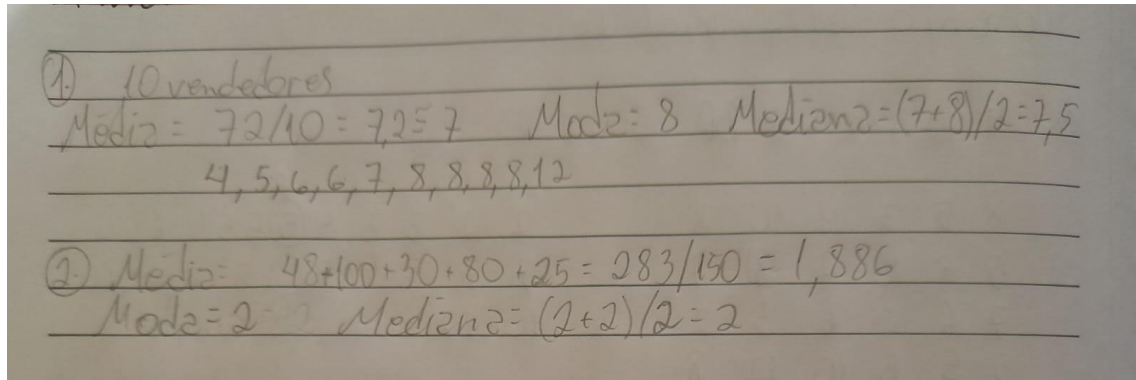 1. 10 vendedores
Média = 72/10 = 7,2 ≅ 7 Moda = 8 Mediana = (7+8)/2 = 7,5
4, 5, 6, 6, 7, 8, 8, 8, 8, 12
2. Média = 48+100+30+80+25 = 283/150 = 1,886
Moda = 2 Mediana = (2+2)/2 = 2